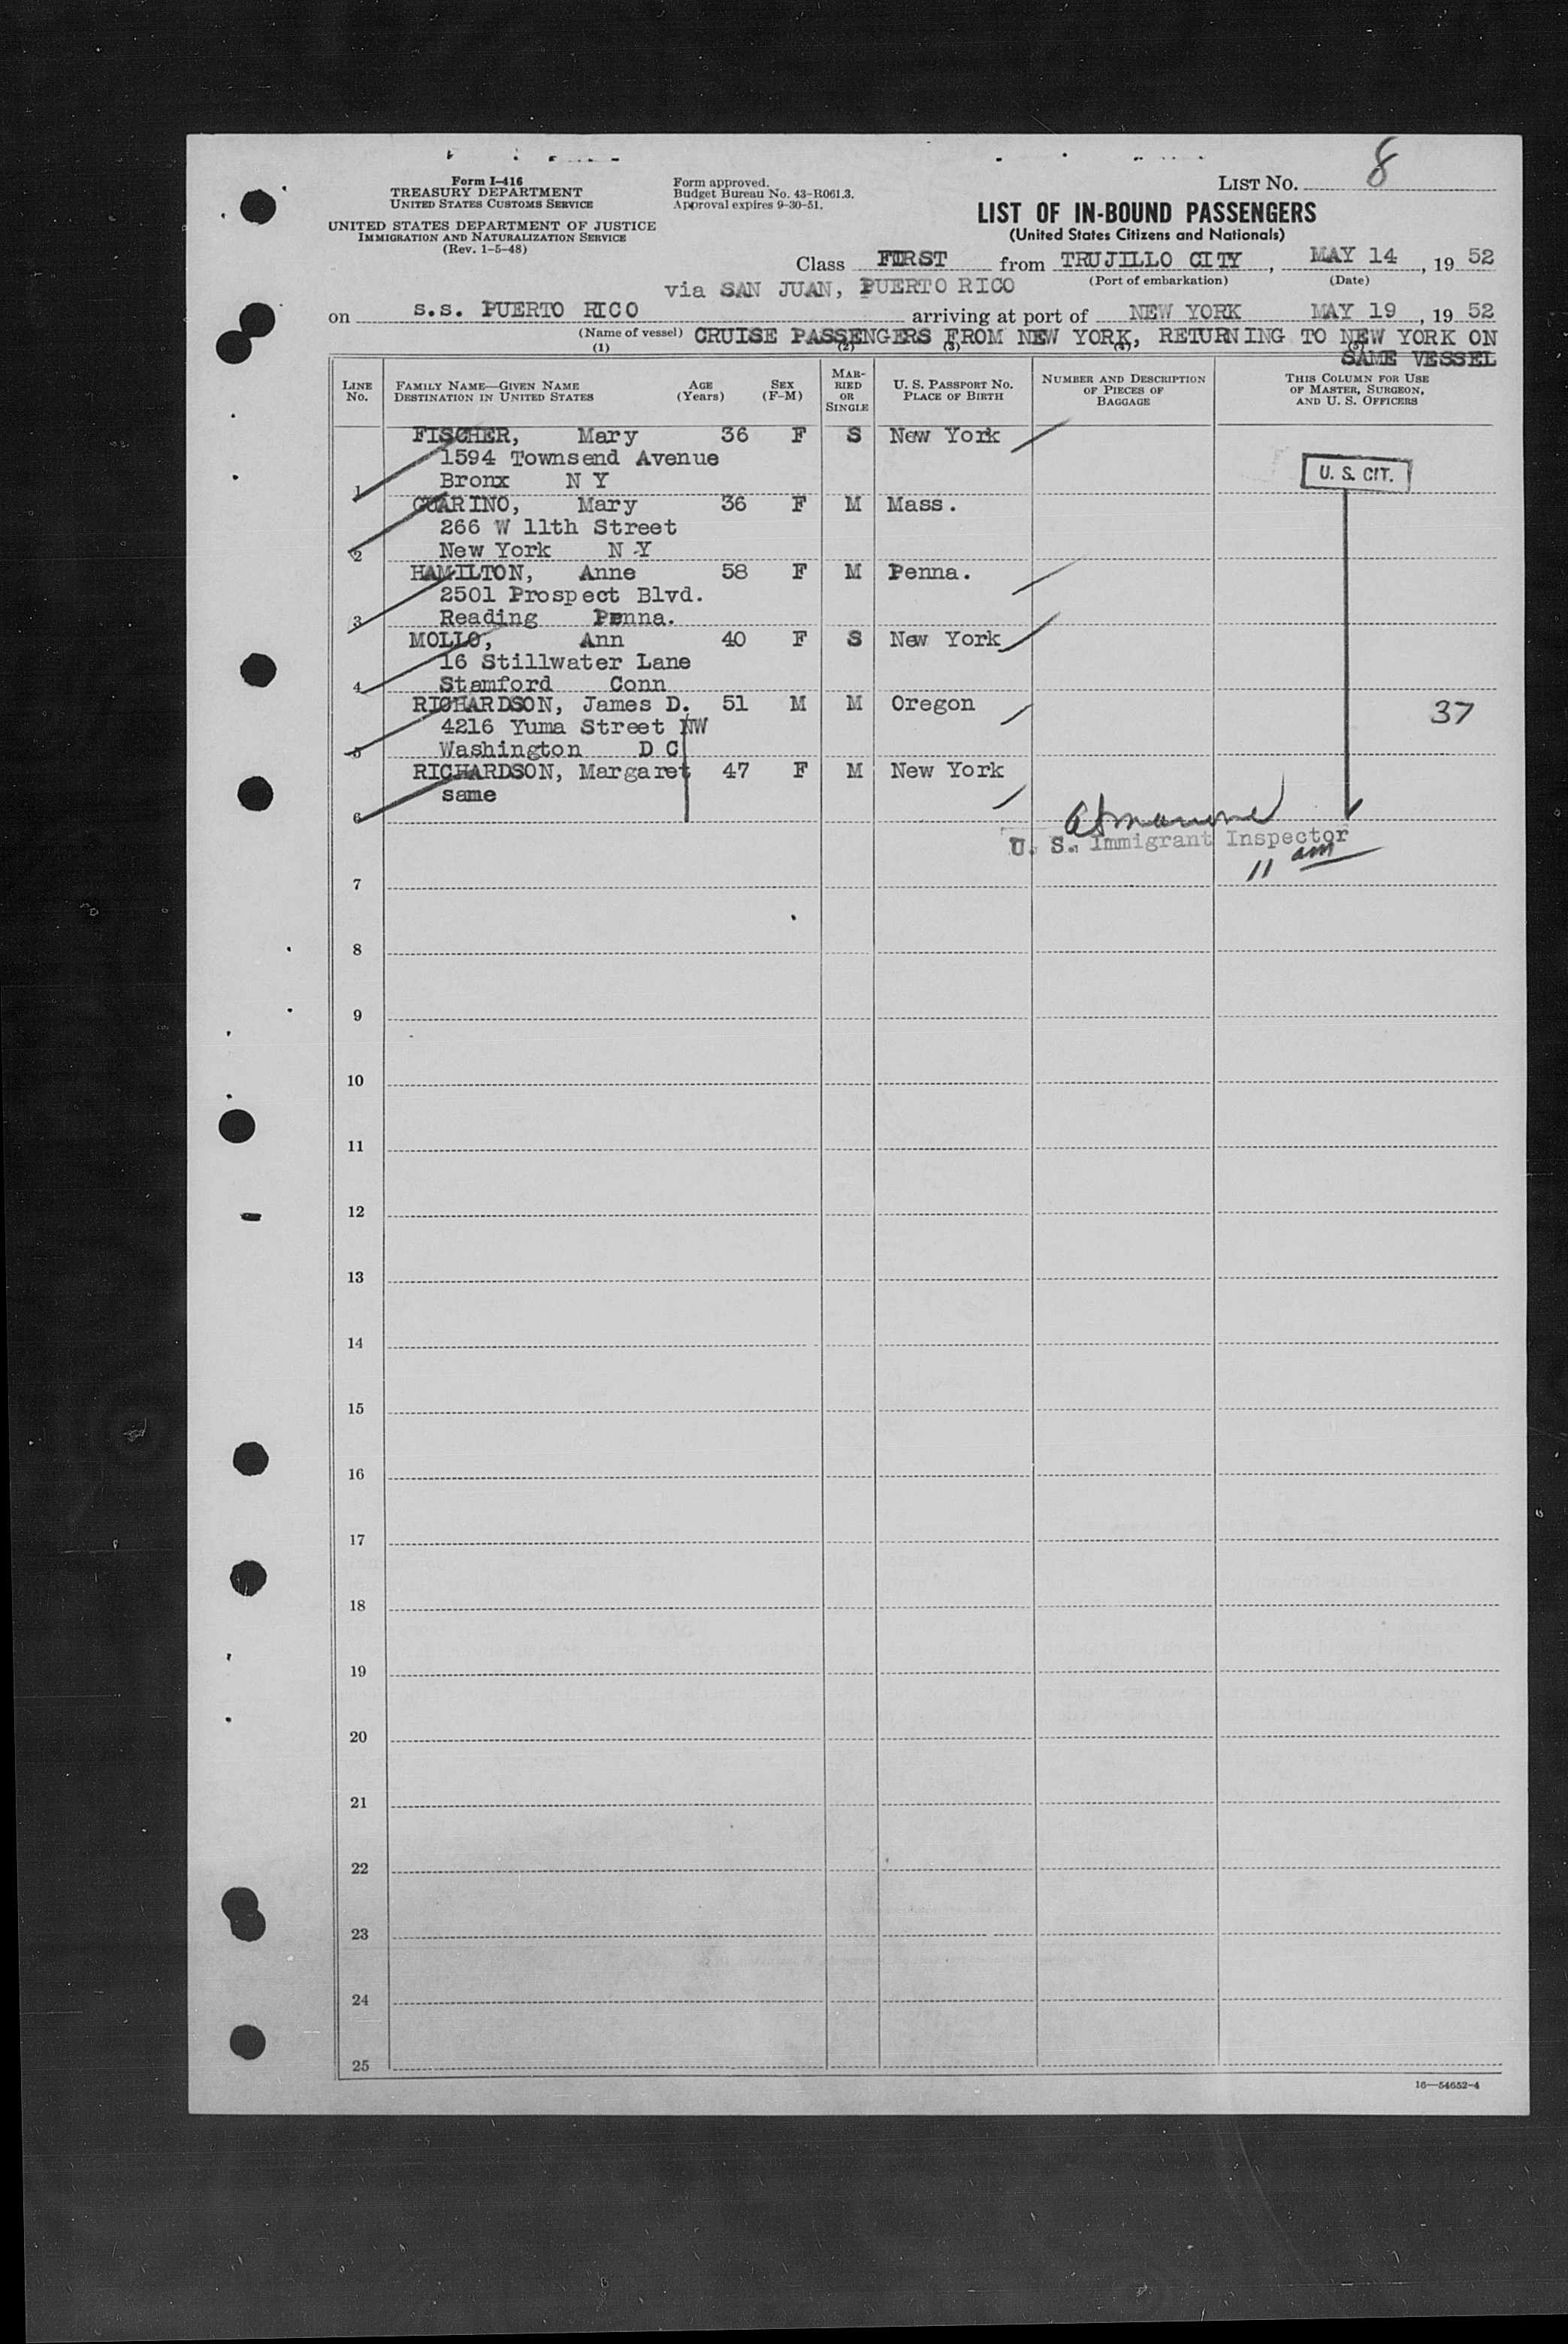 LIST NO. 8
Form I-416
TREASURY DEPARTMENT
UNITED STATES CUSTOMS SERVICE
UNITED STATES DEPARTMENT OF JUSTICE
IMMIGRATION AND NATURALIZATION SERVICE
(Rev. 1-5-48)
Form approved.
Budget Bureau No. 43-R061.3.
Approval expires 9-30-51.
LIST OF IN-BOUND PASSENGERS
(United States Citizens and Nationals)
Class FIRST from TRUJILLO CITY, MAY 14, 1952
(Port of embarkation) (Date)
via SAN JUAN, PUERTO RICO
on s.s. PUERTO RICO arriving at port of NEW YORK MAY 19, 1952
(Name of vessel) CRUISE PASSENGERS FROM NEW YORK, RETURNING TO NEW YORK ON
SAME VESSEL
(1) (2) (3) (4) (5)
LINE NO. FAMILY NAME—GIVEN NAME DESTINATION IN UNITED STATES AGE (Years) SEX (F-M) MARRIED OR SINGLE U. S. PASSPORT NO. PLACE OF BIRTH NUMBER AND DESCRIPTION OF PIECES OF BAGGAGE THIS COLUMN FOR USE OF MASTER, SURGEON, AND U. S. OFFICERS
FISCHER, Mary 36 F S New York
1594 Townsend Avenue
1 Bronx N Y
U. S. CIT.
GUARINO, Mary 36 F M Mass.
266 W 11th Street
2 New York N Y
HAMILTON, Anne 58 F M Penna.
2501 Prospect Blvd.
3 Reading Penna.
MOLLO, Ann 40 F S New York
16 Stillwater Lane
4 Stamford Conn
RICHARDSON, James D. 51 M M Oregon 37
4216 Yuma Street NW
5 Washington D C
RICHARDSON, Margaret 47 F M New York
same
6
U. S. Immigrant Inspector
11 am
7
8
9
10
11
12
13
14
15
16
17
18
19
20
21
22
23
24
25
16—54652-4